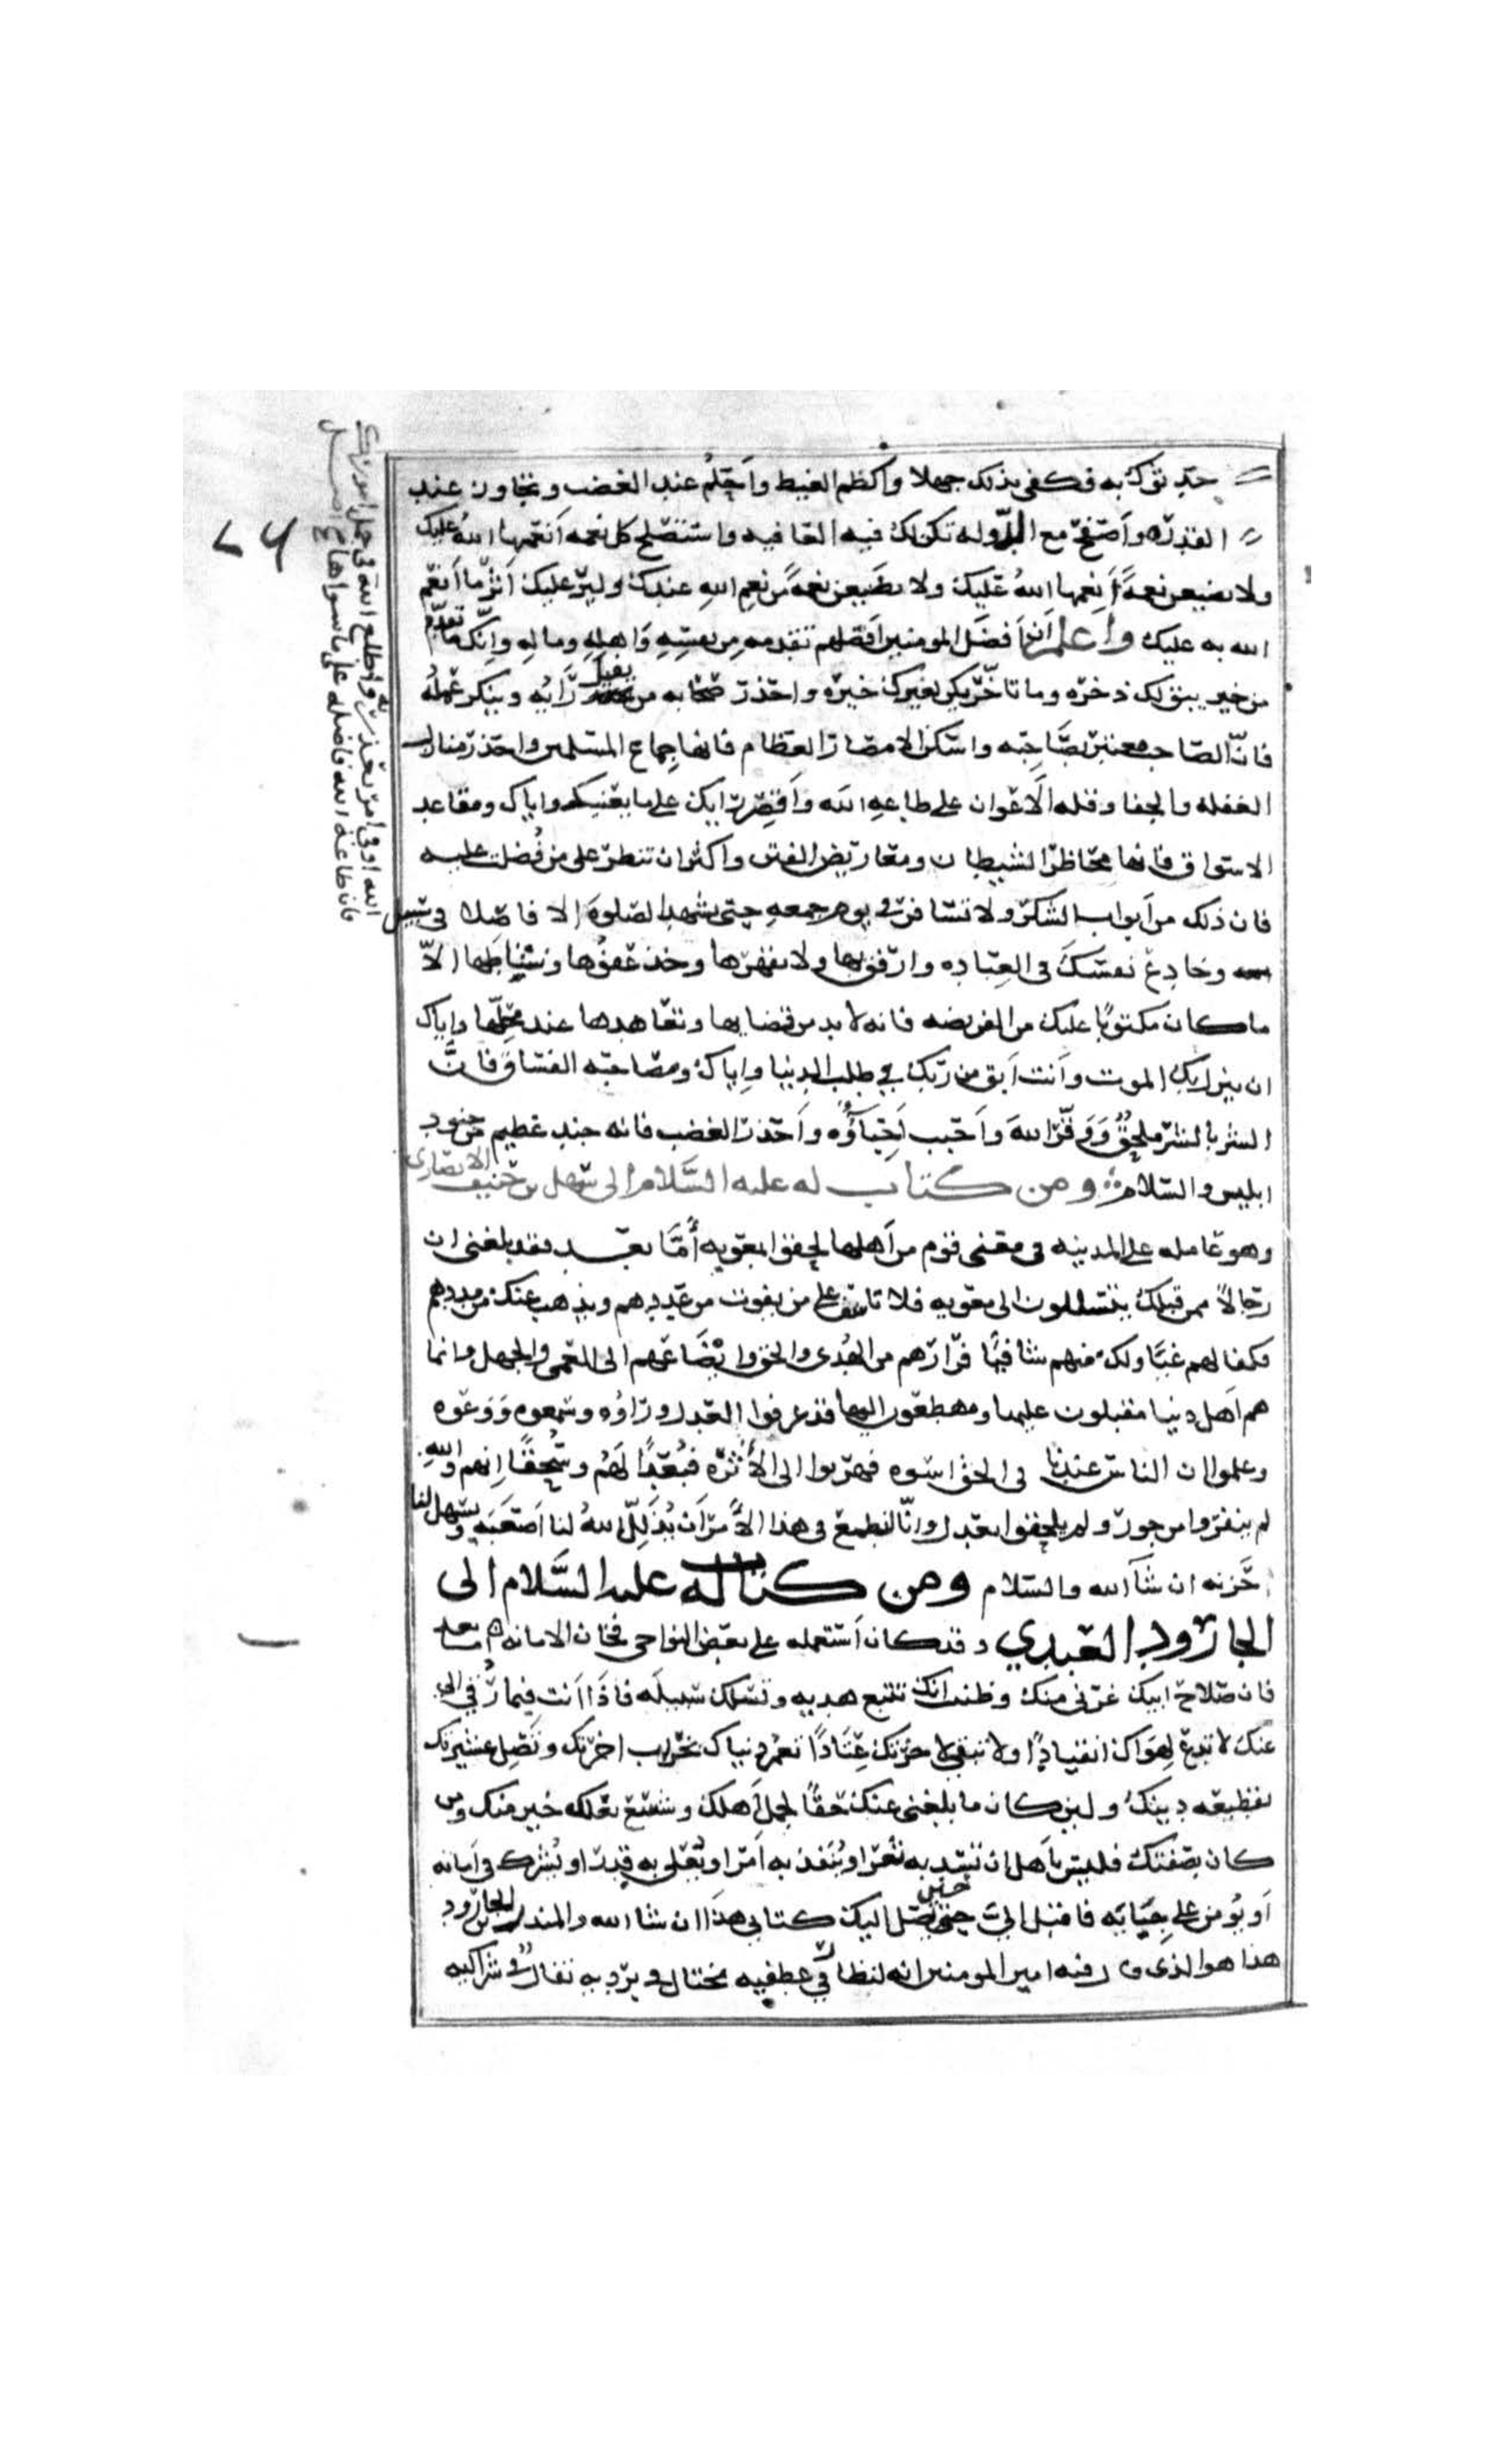 حدثوك به فكفى بذلك جهلا واكظم الغيظ واحلم عند الغضب وتجاوز عند
القدره واصفح مع الدوله تكن لك فيه العاقبه واستصلح كل نعمه انعمها الله عليك
ولا تضيعن نعمة انعمها الله عليك ولا تضيعن نعمة من نعم الله عندك ولير عليك اثر ما انعم
الله به عليك واعلم ان افضل المومنين افضلهم تقدمه من نفسه واهله وماله وانك ما تقدم
من خير يبق لك ذخره وما تاخر يكن لغيرك خيره واحذر صحابه من يفيل رايه وينكر عمله
فان الصاحب معتبر بصاحبه واسكن الامصار العظام فانها جماع المسلمين واحذر منازل
الغفله والجفا وقله الاعوان على طاعه الله واقصر رايك على ما يعنيك واياك ومقاعد
الاسواق فانها محاظر الشيطان ومعاريض الفتن واكثر ان تنظر على من فضلت عليه
فان ذلك من ابواب الشكر ولا تسافر في يوم جمعه حتى تشهد الصلوة الا فاصلا في سبيل
وخادع نفسك في العباده وارفق بها ولا تقهرها وخذ عفوها ونشاطها الا
ما كان مكتوبا عليك من الفريضه فانه لا بد من قضايها وتعاهدها عند محلها واياك
ان ينزل بك الموت وانت ابق من ربك في طلب الدنيا واياك ومصاحبه الفساق فان
الشر بالشر ملحق ووقر الله واحبب احباؤه واحذر الغضب فانه جند عظيم من جنود
ابليس والسلام ومن كتاب له عليه السلام الى سهل بن حنيف الانصارى
وهو عامله على المدينه في معنى قوم من اهلها لحقوا بمعويه أما بعد فقد بلغنى ان
رجالا ممن قبلك يتسللون الى معويه فلا تاسف على من يفوت من عددهم ويذهب عنك من مددهم
فكفا لهم غيا ولك منهم شافيا فرارهم من الهدى والحق وايضاعهم الى العمى والجهل وانما
هم اهل دنيا مقبلون عليها ومهطعون اليها قد عرفوا العدل وراوه وسمعوه ووعوه
وعلموا ان الناس عندنا في الحق اسوه فهربوا الى الأثره فبعدا لهم وسحقا انهم والله
لم ينفروا من جور ولم يلحقوا بعدل وانا لنطمع في هذا الأمر أن يذلل الله لنا اصعبه ويسهل لنا
حزنه ان شآ الله والسلام ومن كتاب له عليه السلام الى
الجارود العبدي وقد كان استعمله على بعض النواحى فخان الامانه اما بعد
فان صلاح ابيك غرنى منك وظننت انك تتبع هديه وتسلك سبيله فاذا انت فيما رقي الى
عنك لا تدع لهواك انقيادا ولا تبقى لاخرتك عتادا تعمر دنياك بخراب اخرتك وتصل عشيرتك
بقطيعه دينك ولين كان ما بلغنى عنك حقا لجمل اهلك وشسع نعلك خير منك ومن
كان بصفتك فليس بأهل ان تسد به ثغر او ينفذ به امر او يعلى به قدر او يشرك في امانه
أو يؤمن على خيانه فاقبل الىّ حين يصل اليك كتابى هذا ان شا الله والمنذر بن الجارود
هذا هو الذى قال فيه امير المومنين انه لنظار في عطفيه مختال في برديه تفال في شراكيه
الله او في امر تعذر به واطع الله في جمل امورك
فان طاعة الله فاضله على ما سواها